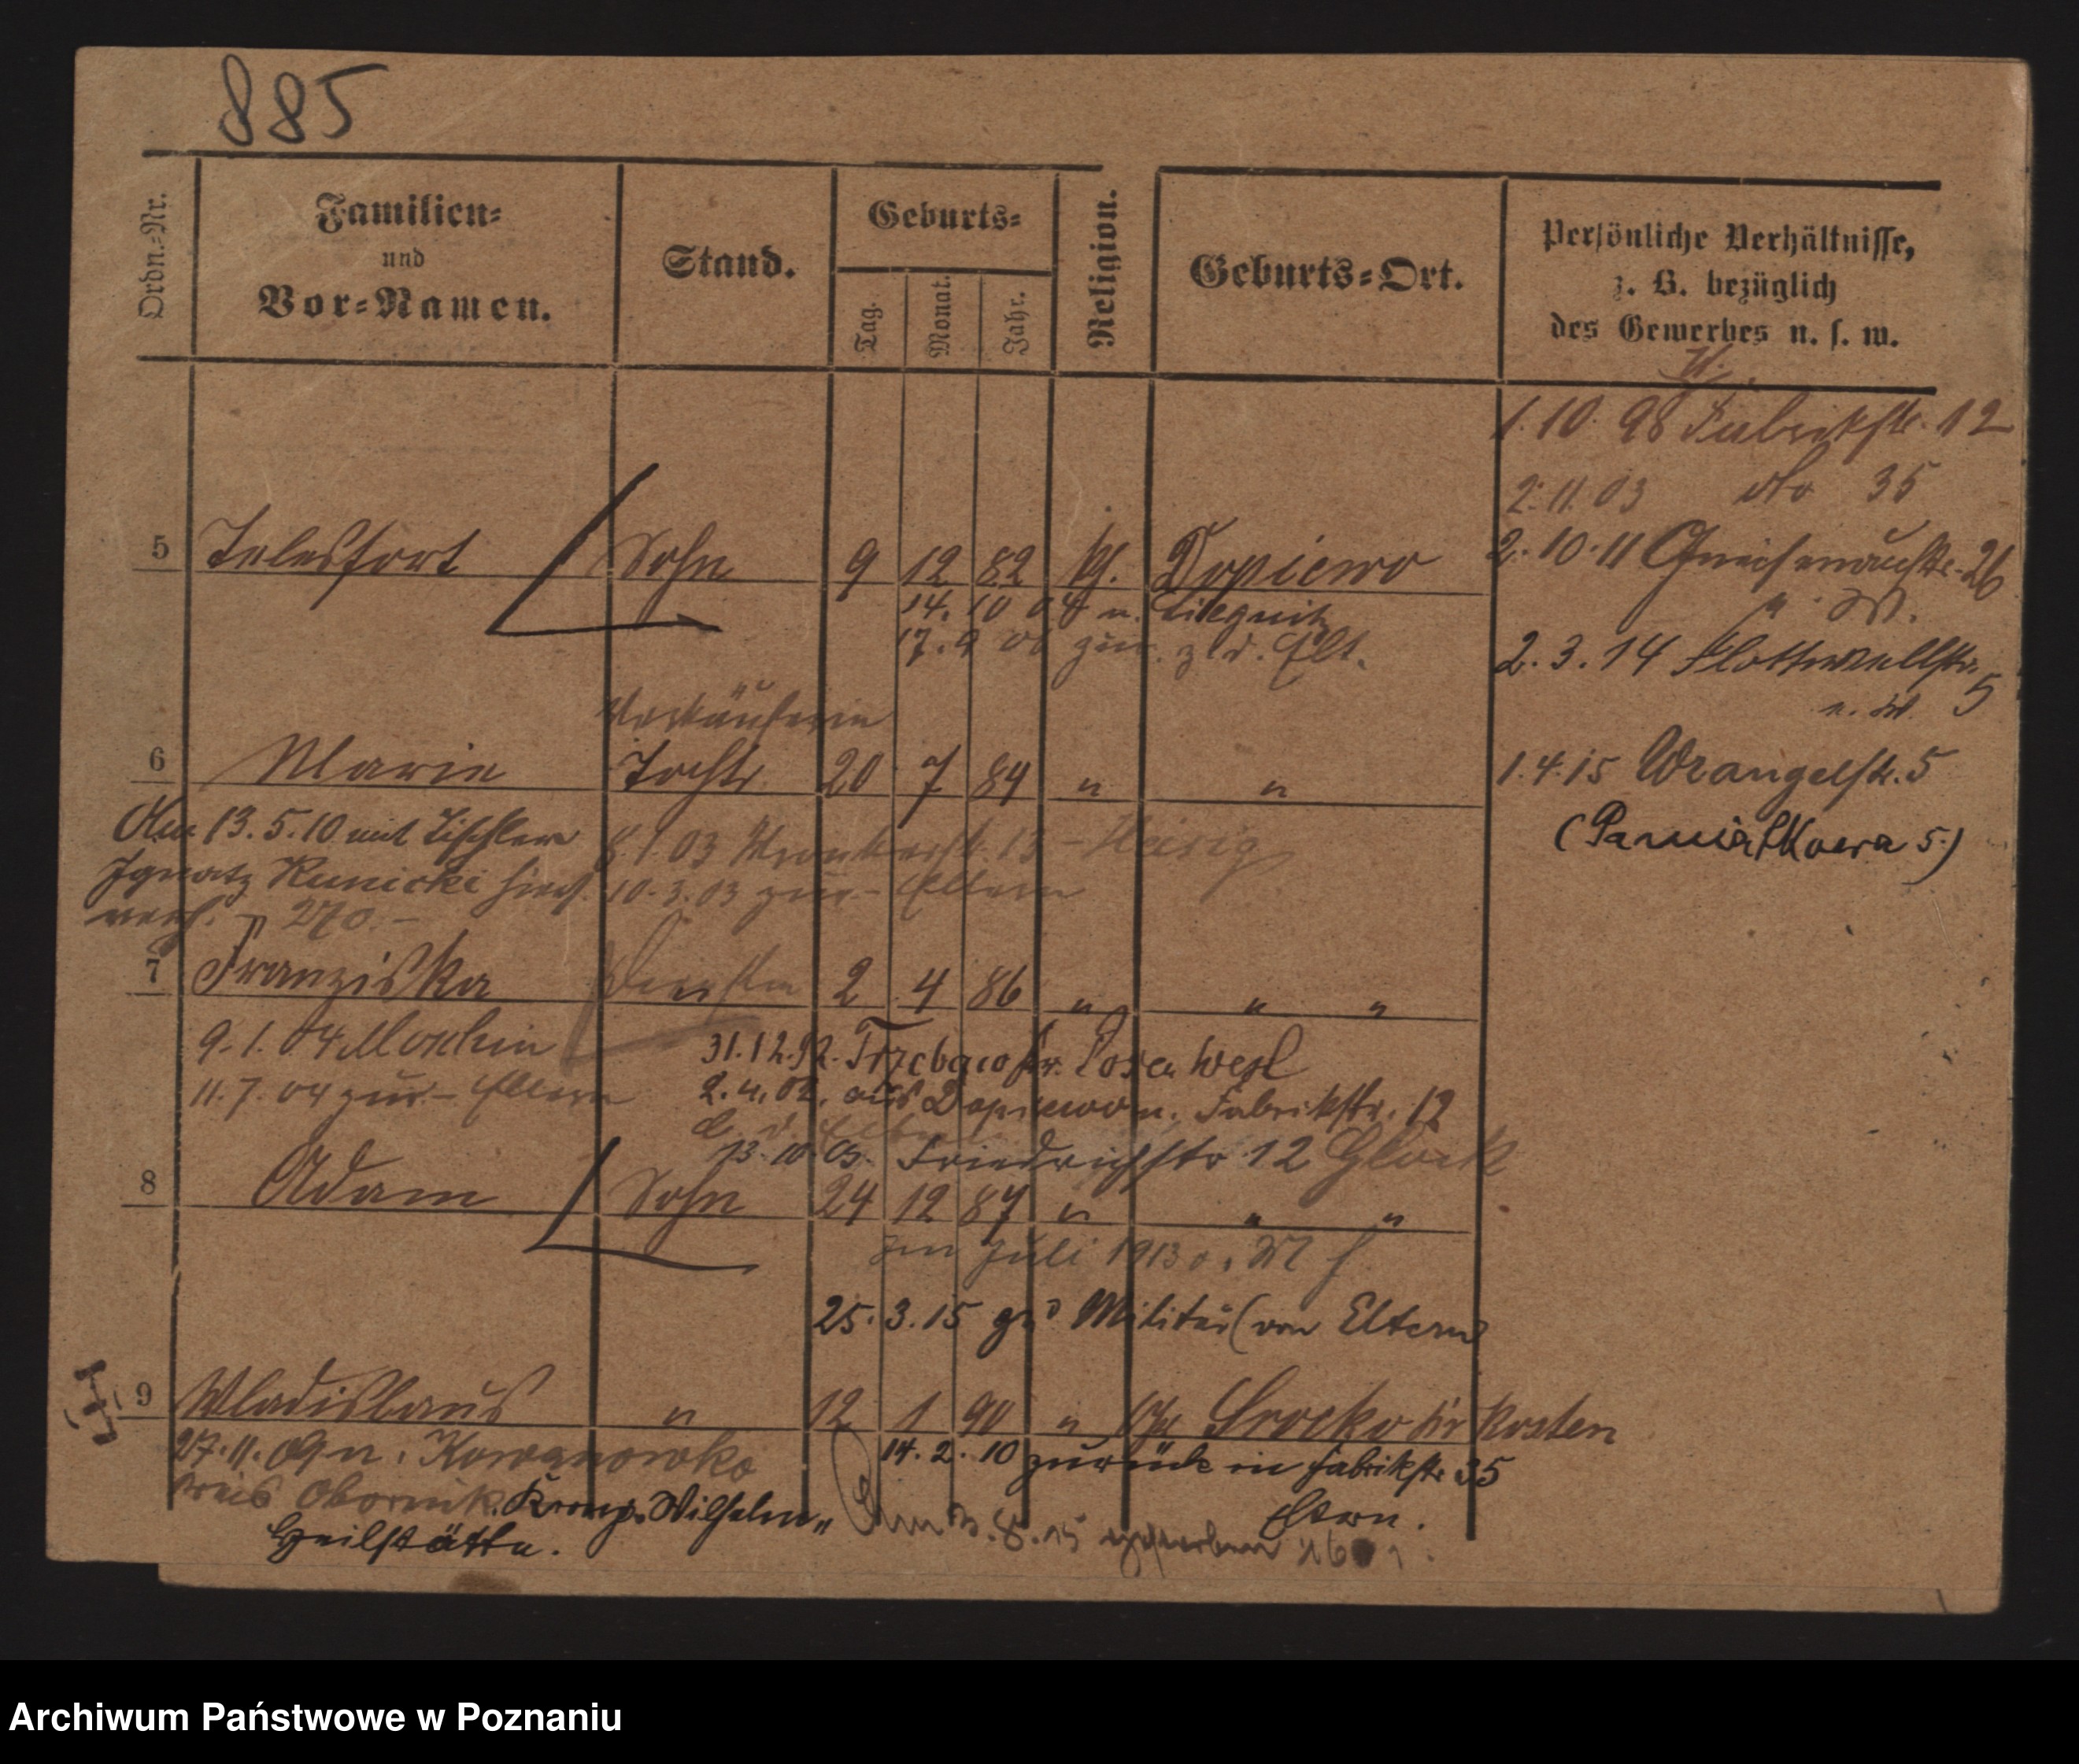 885
Ordn.-Nr.
Familien-
und
Vor-Namen.
Stand.
Geburts-
Tag.
Monat.
Jahr.
Religion.
Geburts-Ort.
Persönliche Verhältnisse,
z. B. bezüglich
des Gewerbes u. s. w.
1. 10. 98 Fabrikstr. 12
2. 11. 03 dto 35
5 Telesfort Sohn 9 12 82 kj. Dopiewo
2. 10. 11 Gneisenaustr. 26
14. 10 04 n. Liegnitz
17. 9 06 zur. z. d. Elt.
2. 3. 14 Flottwellstr. 5
Verkäuferin
6 Marie Tocht. 20 7 84 " "
1. 4. 15 Wrangelstr. 5
(Pamiątkowa 5.)
Am 13. 5. 10 mit Tischler
Ignatz Kunicki hies.
verh. 270.-
8. 1. 03 13 -
10. 3. 03 zur- Eltern
7 Franziska 2 4 86 " " "
9. 1. 04 Moschin
11. 7. 04 zur- Eltern
31. 12. 92. Trzebaw Kr. Posen West
2. 4. 02. aus Dopiewo n. Fabrikstr. 12
13. 10. 03. Friedrichstr 12
8 Adam Sohn 24 12 87 " " "
im Juli 1913
25. 3. 15 zum Militär (von Eltern)
9 Wladislaus " 12 1 90 " Srocko kr Kosten
27. 11. 09 n. Kowanowko
Kreis Obornik. Kronp. Wilhelm"
Heilstätte.
14. 2. 10 zurück in Fabrikstr 35
Eltern.
Am 3. 8. 15 gestorben
Archiwum Państwowe w Poznaniu